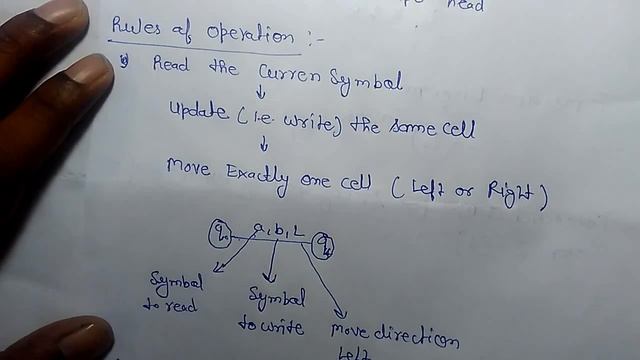 head
Rules of operation :-
Read the Curren Symbol
↓
update (i.e. write) the same cell
↓
Move Exactly one cell (Left or Right)
a, b, L
Symbol to read
Symbol to write
move direction
Left